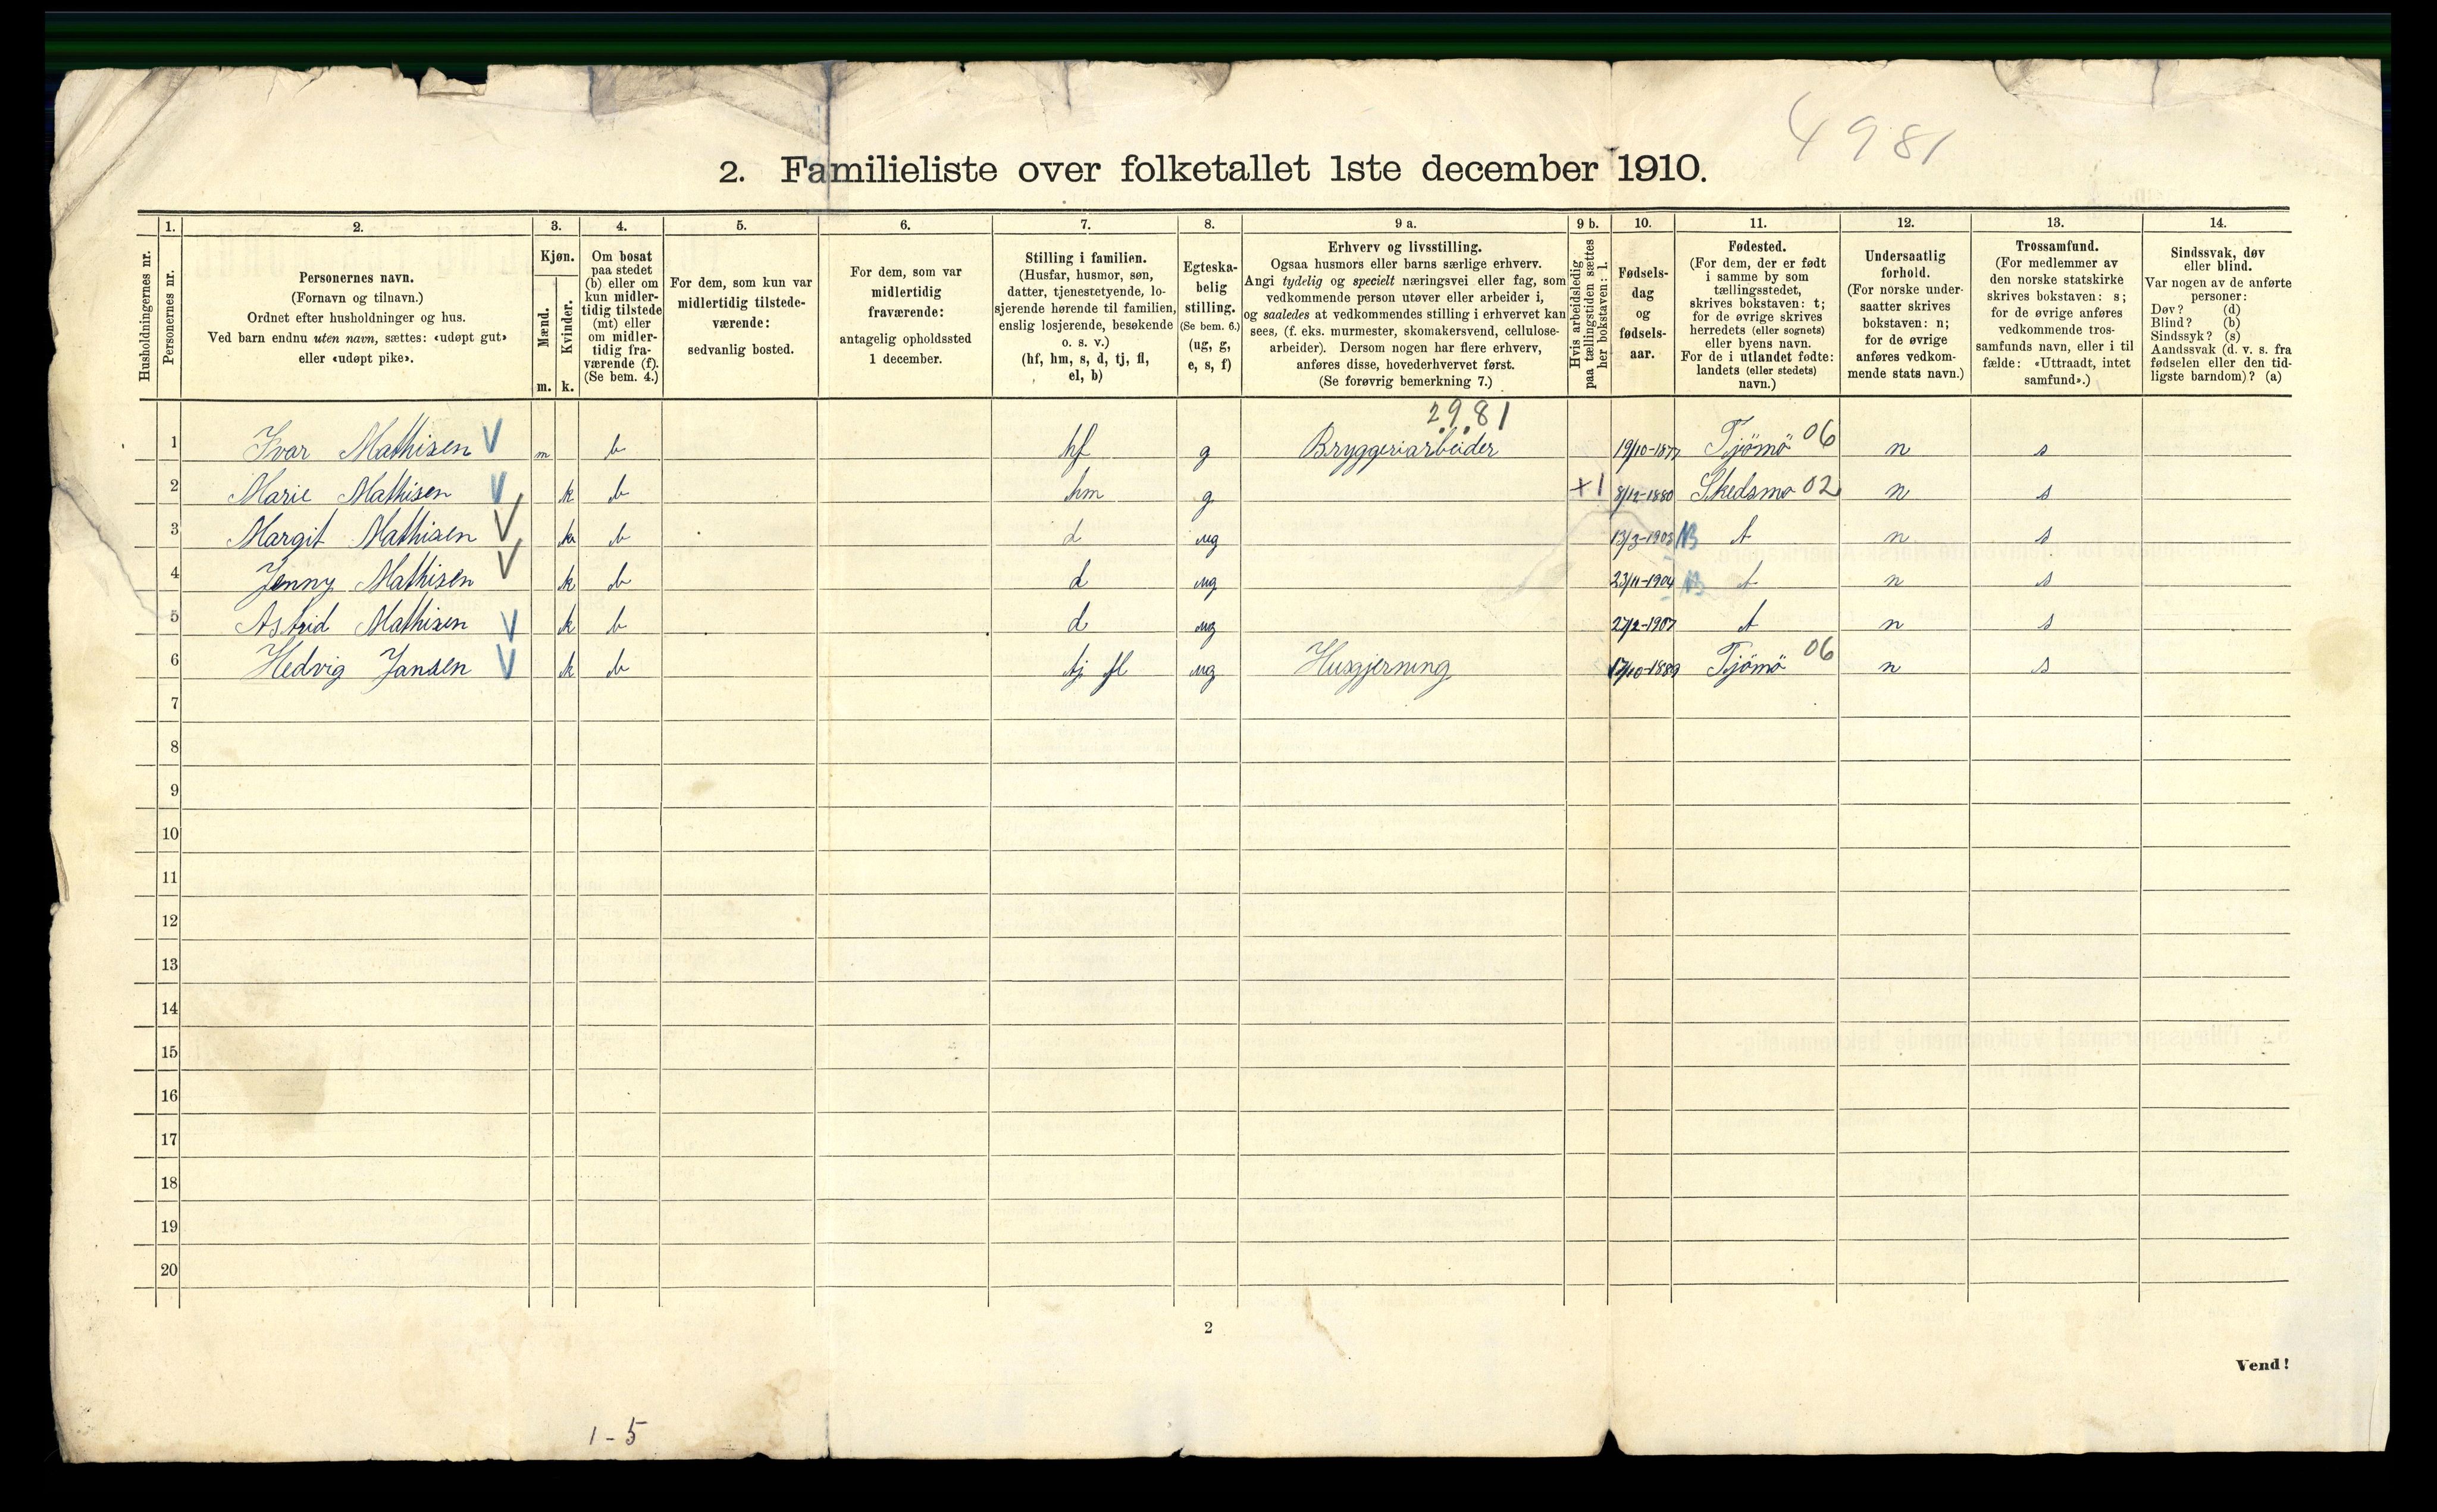 4981
2. Familieliste over folketallet 1ste december 1910.
1. 2. 3. 4. 5. 6. 7. 8. 9 a. 9 b. 10. 11. 12. 13. 14.
Husholdningernes nr.
Personernes nr.
Personernes navn.
(Fornavn og tilnavn.)
Ordnet efter husholdninger og hus.
Ved barn endnu uten navn, sættes: «udøpt gut»
eller «udøpt pike».
Kjøn.
Mænd.
Kvinder.
m. k.
Om bosat
paa stedet
(b) eller om
kun midler-
tidig tilstede
(mt) eller
om midler-
tidig fra-
værende (f).
(Se bem. 4.)
For dem, som kun var
midlertidig tilstede-
værende:
sedvanlig bosted.
For dem, som var
midlertidig
fraværende:
antagelig opholdssted
1 december.
Stilling i familien.
(Husfar, husmor, søn,
datter, tjenestetyende, lo-
sjerende hørende til familien,
enslig losjerende, besøkende
o. s. v.)
(hf, hm, s, d, tj, fl,
el, b)
Egteska-
belig
stilling.
(Se bem. 6.)
(ug, g,
e, s, f)
Erhverv og livsstilling.
Ogsaa husmors eller barns særlige erhverv.
Angi tydelig og specielt næringsvei eller fag, som
vedkommende person utøver eller arbeider i,
og saaledes at vedkommendes stilling i erhvervet kan
sees, (f. eks. murmester, skomakersvend, cellulose-
arbeider). Dersom nogen har flere erhverv,
anføres disse, hovederhvervet først.
(Se forøvrig bemerkning 7.)
Hvis arbeidsledig
paa tællingstiden sættes
her bokstaven: l.
Fødsels-
dag
og
fødsels-
aar.
Fødested.
(For dem, der er født
i samme by som
tællingsstedet,
skrives bokstaven: t;
for de øvrige skrives
herredets (eller sognets)
eller byens navn.
For de i utlandet fødte:
landets (eller stedets)
navn.)
Undersaatlig
forhold.
(For norske under-
saatter skrives
bokstaven: n;
for de øvrige
anføres vedkom-
mende stats navn.)
Trossamfund.
(For medlemmer av
den norske statskirke
skrives bokstaven: s;
for de øvrige anføres
vedkommende tros-
samfunds navn, eller i til
fælde: «Uttraadt, intet
samfund».)
Sindssvak, døv
eller blind.
Var nogen av de anførte
personer:
Døv? (d)
Blind? (b)
Sindssyk? (s)
Aandssvak (d. v. s. fra
fødselen eller den tid-
ligste barndom)? (a)
2.9.81
1 Ivar Mathisen V m b hf g Bryggeriarbeider 19/10-1877 Tjömö 06 n s
2 Marie Mathisen V k b hm g +1 8/12-1880 Skedsmo 02 n s
3 Margit Mathisen V k b d ug 13/3-1903 t n s
4 Jenny Mathisen V k b d ug 23/11-1904 t n s
5 Astrid Mathisen V k b d ug 27/2-1907 t n s
6 Hedvig Jansen V k b tj fl ug Husgjerning 17/10-1889 Tjömö 06 n s
7
8
9
10
11
12
13
14
15
16
17
18
19
20
2
Vend!
1-5